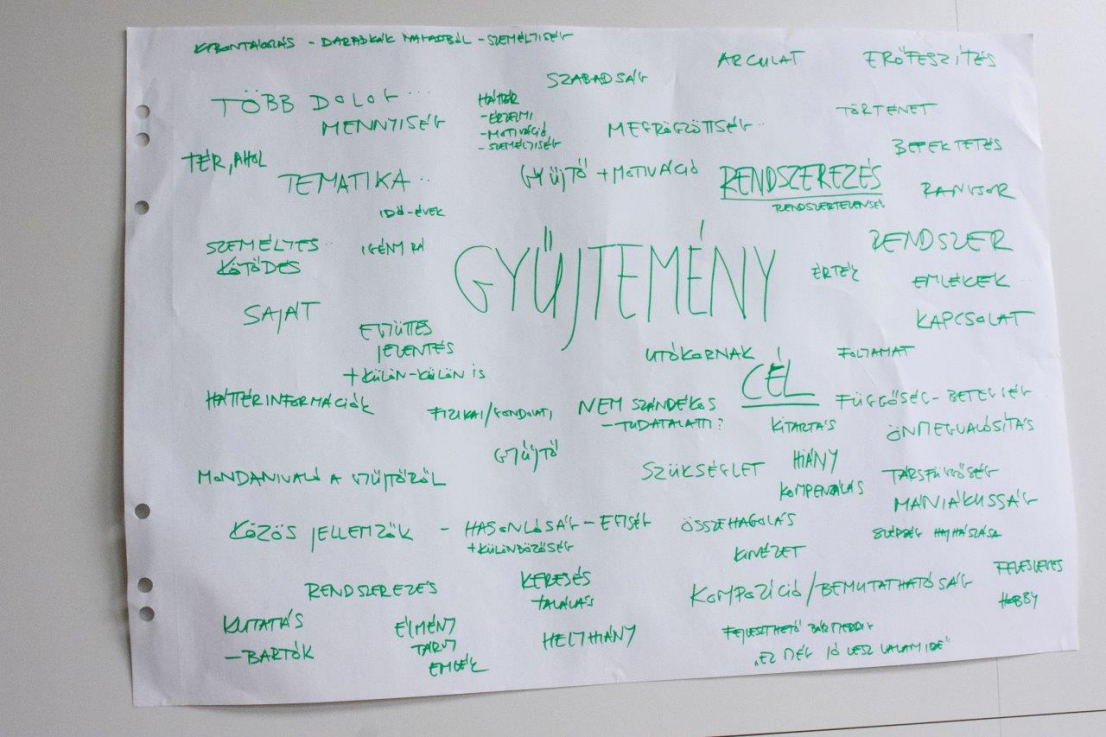 KIBONTAKOZÁS - DARABKÁK MAGADBÓL - SZEMÉLYISÉG
ARCULAT
ERŐFESZÍTÉS
SZABADSÁG
TÖBB DOLOG...
MENNYISÉG
HÁTTÉR
- ÉRZELMI
- MOTIVÁCIÓ
- SZEMÉLYISÉG
MEGRÖGZÖTTSÉG
TÖRTÉNET
BEFEKTETÉS
TÉR, AHOL
TEMATIKA...
GYŰJTŐ + MOTIVÁCIÓ
RENDSZEREZÉS
RENDSZERTELENSÉG
RANGSOR
IDŐ-ÉVEK
SZEMÉLYES
KÖTŐDÉS
IGÉNY RÁ
GYŰJTEMÉNY
RENDSZER
ÉRTÉK
EMLÉKEK
SAJÁT
KAPCSOLAT
EGYÜTTES
JELENTÉS
+ KÜLÖN-KÜLÖN IS
UTÓKORNAK
FOLYAMAT
CÉL
HÁTTÉRINFORMÁCIÓK
FIZIKAI/GONDOLATI
NEM SZÁNDÉKOS
- TUDATALATTI?
FÜGGŐSÉG - BETEGSÉG
KITARTÁS
ÖNMEGVALÓSÍTÁS
GYŰJTŐ
SZÜKSÉGLET
HIÁNY
KOMPENZÁLÁS
TÁRSFÜGGŐSÉG
MONDANIVALÓ A GYŰJTŐRŐL
MÁNIÁKUSSÁG
KÖZÖS JELLEMZŐK - HASONLÓSÁG - EGYSÉG
+ KÜLÖNBÖZŐSÉG
SZÉPSÉG HAJHÁSZÁSA
KINÉZET
RENDSZEREZÉS
KERESÉS
TALÁLÁS
KOMPOZÍCIÓ/BEMUTATHATÓSÁG
FELESLEGES
HOBBY
KUTATÁS
- BARTÓK
ÉLMÉNY
TÁRGY
EMLÉK
HELYHIÁNY
FEJLESZTHETŐ
"EZ MÉG JÓ LESZ VALAMIRE"